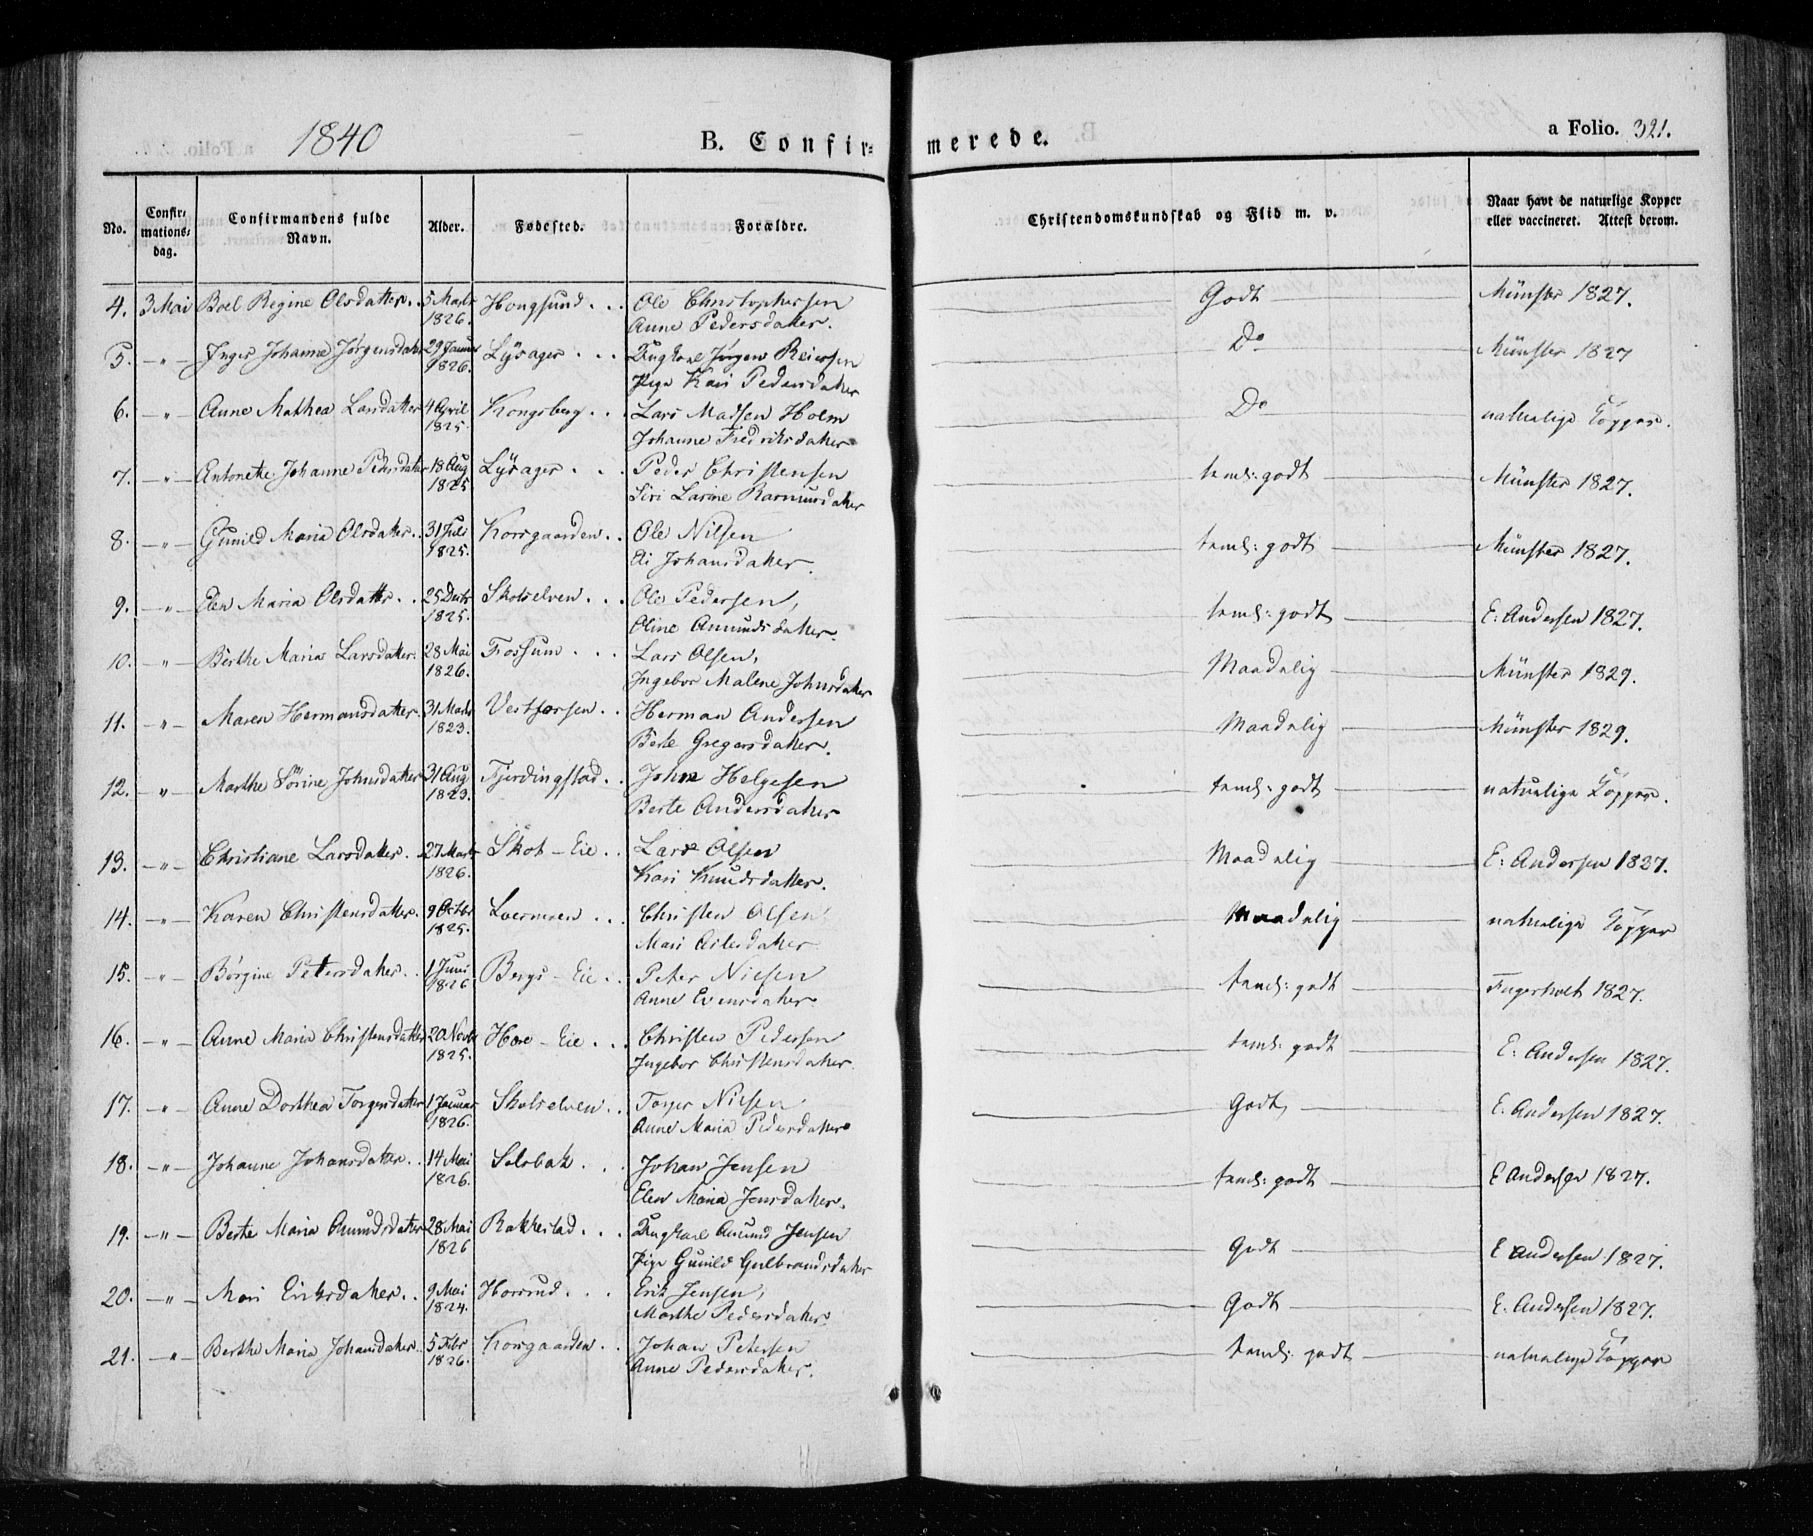 1840 B. Confirmerede. a Folio. 321.
No. Confirmationsdag. Confirmandens fulde Navn. Alder. Fødested. Forældre. Christendomskundskab og Flid m. v. Naar havt de naturlige Kopper eller vaccineret. Attest derom.
4. 3 Mai Boel Regine Olsdatter. 5 Marts 1826. Hougsund. Ole Christophersen Godt Münster 1827.
Anne Pedersdatter.
5. -"- Inger Johanne Jørgensdatter 29 Januar 1826. Lysager Ungkarl Jørgen Reiersen Do Münster 1827
Pige Kari Pedersdatter
6. -"- Anne Mathea Larsdatter 4 April 1825. Kongsberg Lars Madsen Holm Do naturlige Kopper.
Johanne Fredriksdatter
7. -"- Antonette Johanne Pedersdatter 18 Aug 1825. Lysager Peder Christensen teml: godt Münster 1827.
Siri Larine Rasmusdatter
8. -"- Gunild Maria Olsdatter 31 Juli 1825. Korsgaarden Ole Nilsen teml: godt Münster 1827.
Johansdatter.
9. -"- Elen Maria Olsdatter 25 Decbr 1825. Skotselven Ole Pedersen, teml: godt E. Andersen 1827.
Oline Amundsdatter.
10. -"- Berthe Maria Larsdatter. 28 Mai 1826. Fossum Lars Olsen, Maadelig Münster 1829.
Ingebor Malene Johnsdatter
11. -"- Maren Hermansdatter. 31 Marts 1823. Vestfossen Herman Andersen Maadelig Münster 1829.
Berte Gregersdatter.
12. -"- Marthe Sørine Johnsdatter 31 Aug 1823. Fjerdingstad John Helgesen teml: godt naturlige Kopper.
Berte Andersdatter
13. -"- Christiane Larsdatter. 27 Marts 1826. Skot-Eie Lars Olsen Maadelig E: Andersen 1827.
Kari Knudsdatter.
14. -"- Karen Christensdatter. 9 Octbr 1825. Loesmoen Christen Olsen Maadelig naturlige Kopper
Mari datter
15. -"- Børgine Petersdatter. 1 Juni 1826 Bergs-Eie Peter Nielsen teml: godt Fagerholt 1827.
Anne Evensdatter
16. -"- Anne Maria Christensdatter 20 Novbr 1825. Hore-Eie Christen Pedersen teml: godt E: Andersen 1827.
Ingebor Christensdatter.
17. -"- Anne Dorthea Torgersdatter 1 Januar 1826. Skotselven Torger Nielsen Godt E. Andersen 1827.
Anne Maria Pedersdatter
18. -"- Johanne Johansdatter 14 Mai 1826. Selsbak Johan Jensen teml: godt E Andersen 1827.
Elen Maria Jensdatter.
19. -"- Berte Maria Amundsdatter 28 Mai 1826 Rakkestad Ungkarl Amund Jensen Godt E Andersen 1827.
Pige Gunild Gulbrandsdatter
20. -"- Mari Eriksdatter 9 Mai 1824. Horsrud Erik Jensen, Godt E. Andersen 1827.
Marthe Pedersdatter.
21. -"- Berthe Maria Johansdatter 5 Febr 1826. Korsgaarden Johan Petersen teml: godt naturlige Kopper
Anne Pedersdatter.